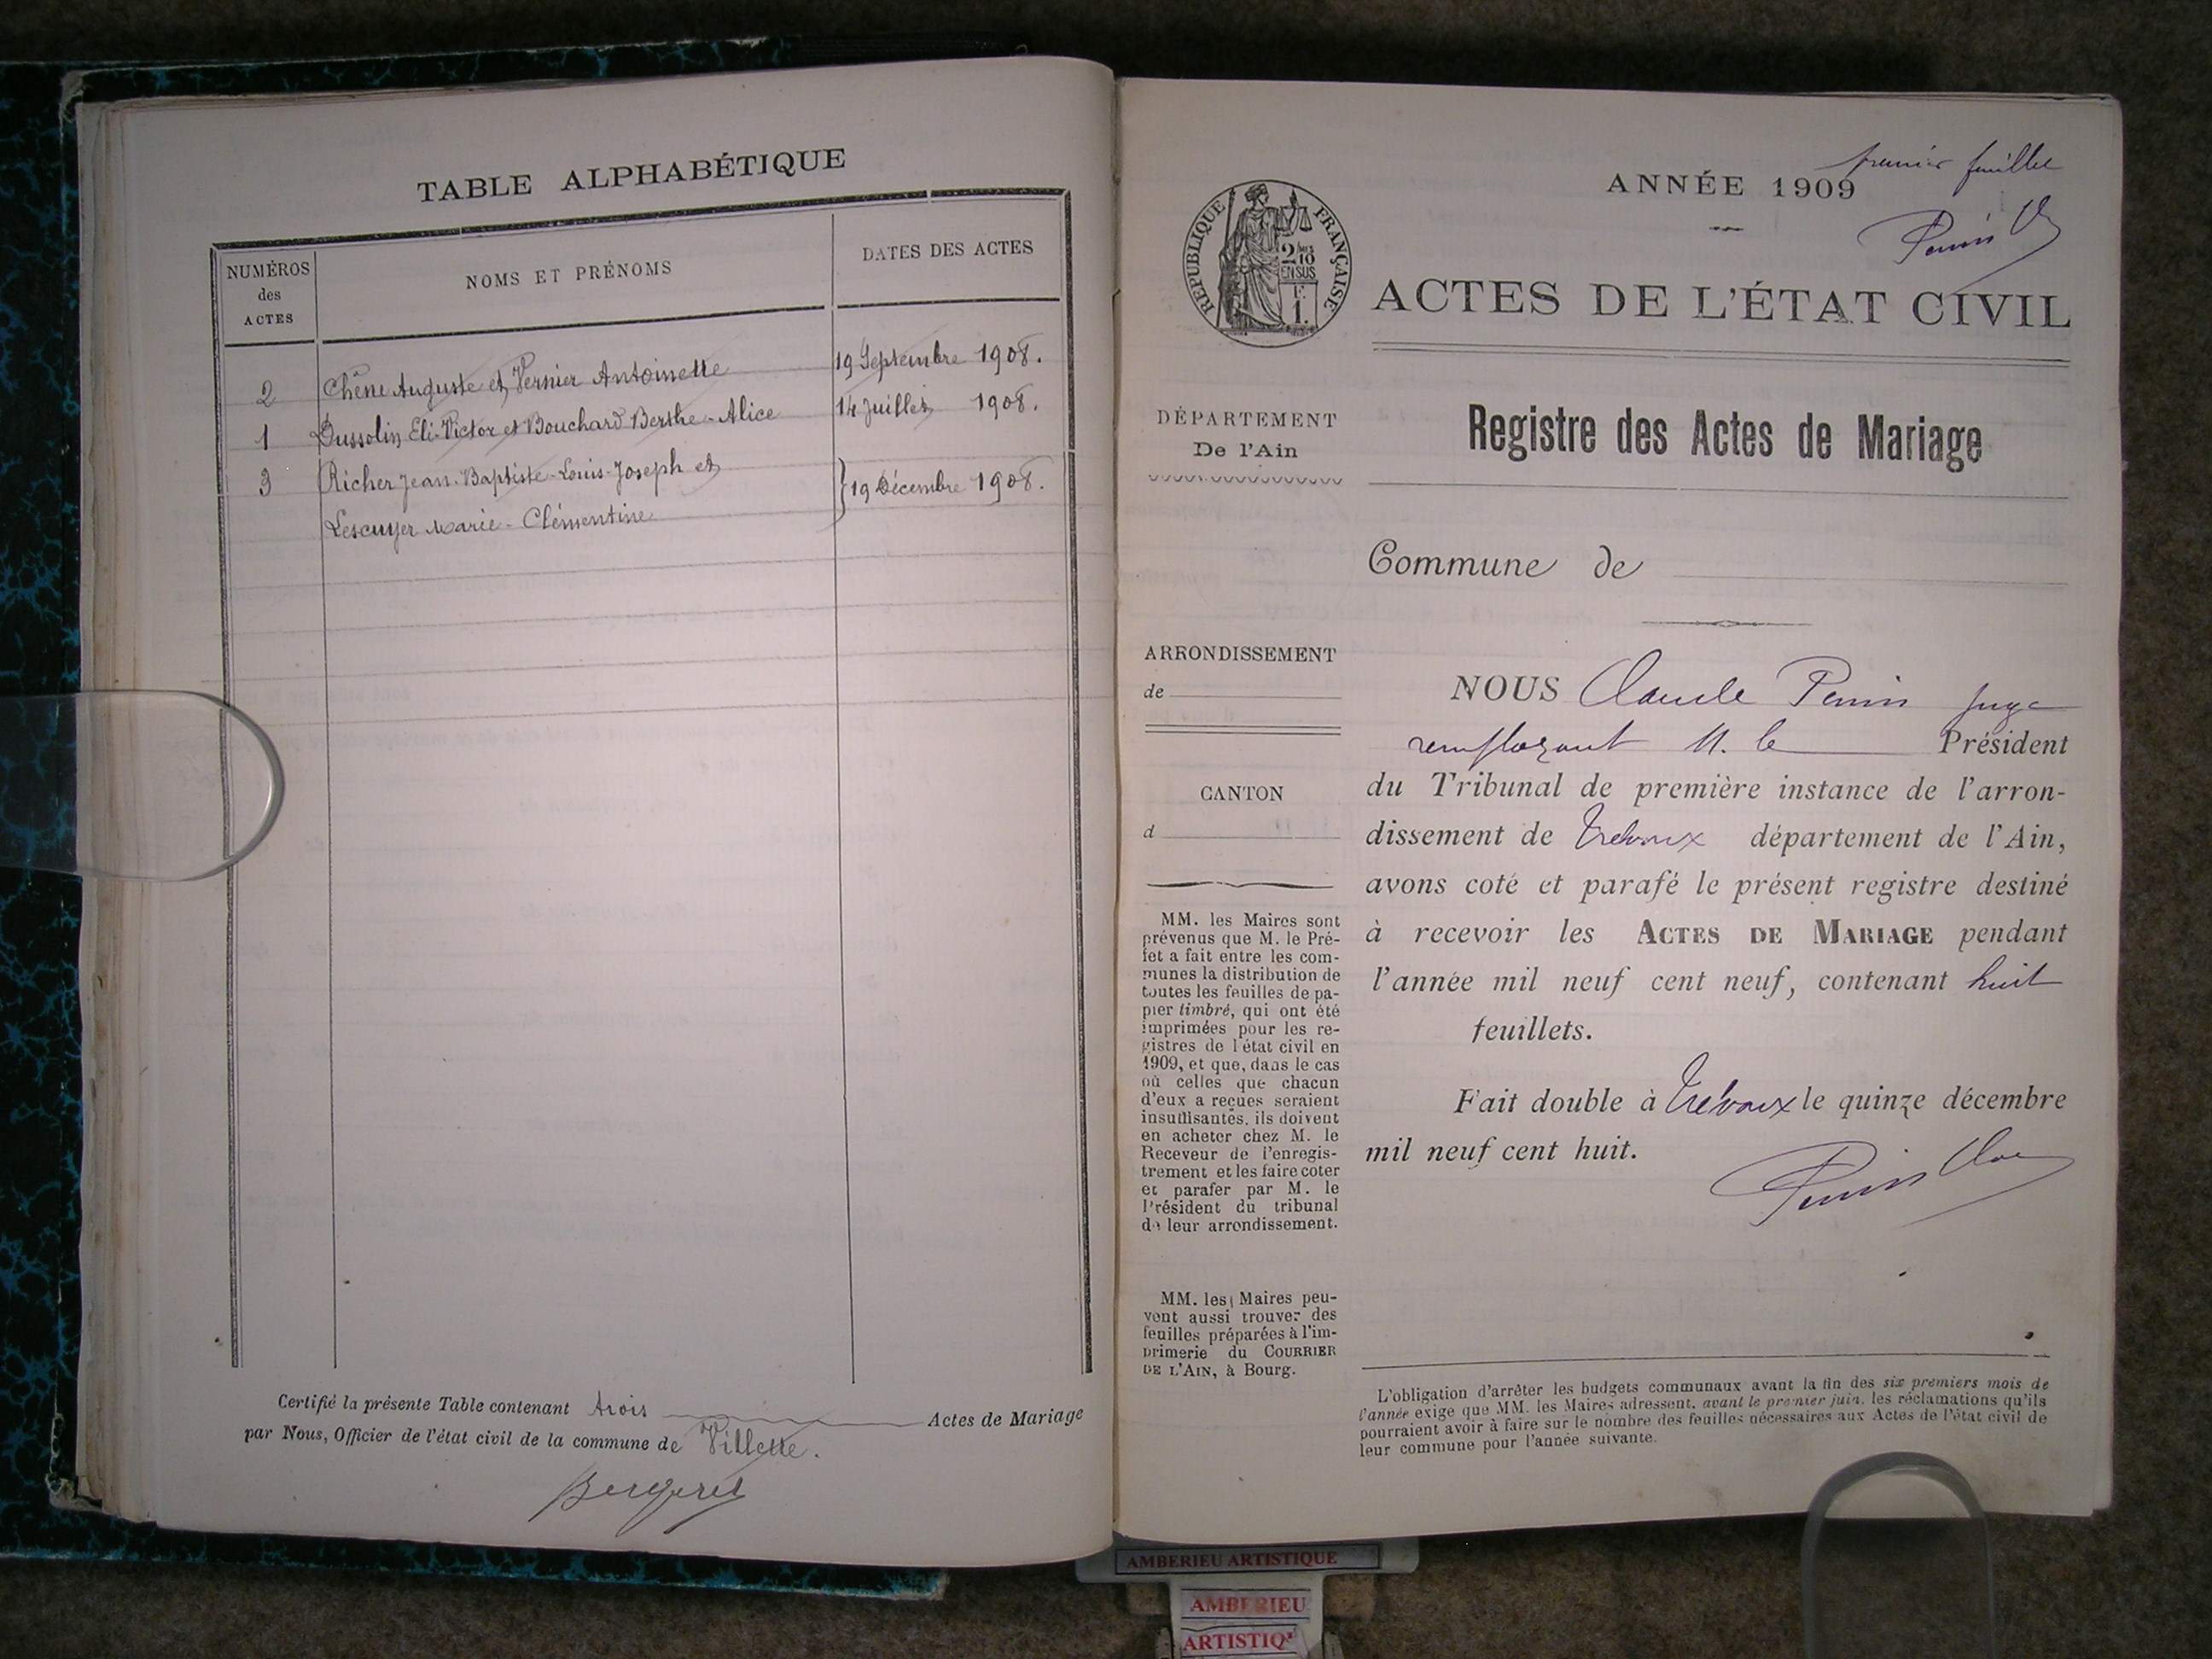 TABLE ALPHABÉTIQUE
NUMÉROS
des
ACTES
NOMS ET PRÉNOMS
DATES DES ACTES
2 Chêne Auguste et Vernier Antoinette 19 Septembre 1908.
1 Dussolin Eli-Victor et Bouchard Berthe-Alice 14 Juillet 1908.
3 Richer Jean-Baptiste-Louis-Joseph et } 19 Décembre 1908.
Lescuyer Marie-Clémentine
Certifié la présente Table contenant trois Actes de Mariage
par Nous, Officier de l'état civil de la commune de Villette.
Bergeret
premier feuillet
ANNÉE 1909
RÉPUBLIQUE FRANÇAISE
2/10
EN SUS
F.
1.
ACTES DE L'ÉTAT CIVIL
DÉPARTEMENT
De l'Ain
Registre des Actes de Mariage
Commune de
ARRONDISSEMENT
de
CANTON
d
MM. les Maires sont
prévenus que M. le Pré-
fet a fait entre les com-
munes la distribution de
toutes les feuilles de pa-
pier timbré, qui ont été
imprimées pour les re-
gistres de l'état civil en
1909, et que, dans le cas
où celles que chacun
d'eux a reçues seraient
insuffisantes, ils doivent
en acheter chez M. le
Receveur de l'enregis-
trement et les faire coter
et parafer par M. le
Président du tribunal
de leur arrondissement.
MM. les Maires peu-
vent aussi trouver des
feuilles préparées à l'im-
primerie du COURRIER
DE L'AIN, à Bourg.
NOUS Claude Perrin juge
remplaçant M. le Président
du Tribunal de première instance de l'arron-
dissement de Trévoux département de l'Ain,
avons coté et parafé le présent registre destiné
à recevoir les ACTES DE MARIAGE pendant
l'année mil neuf cent neuf, contenant huit
feuillets.
Fait double à Trévoux le quinze décembre
mil neuf cent huit.
L'obligation d'arrêter les budgets communaux avant la fin des six premiers mois de
l'année exige que MM. les Maires adressent, avant le premier juin, les réclamations qu'ils
pourraient avoir à faire sur le nombre des feuilles nécessaires aux Actes de l'état civil de
leur commune pour l'année suivante.
AMBERIEU ARTISTIQUE
AMBERIEU
ARTISTIQ